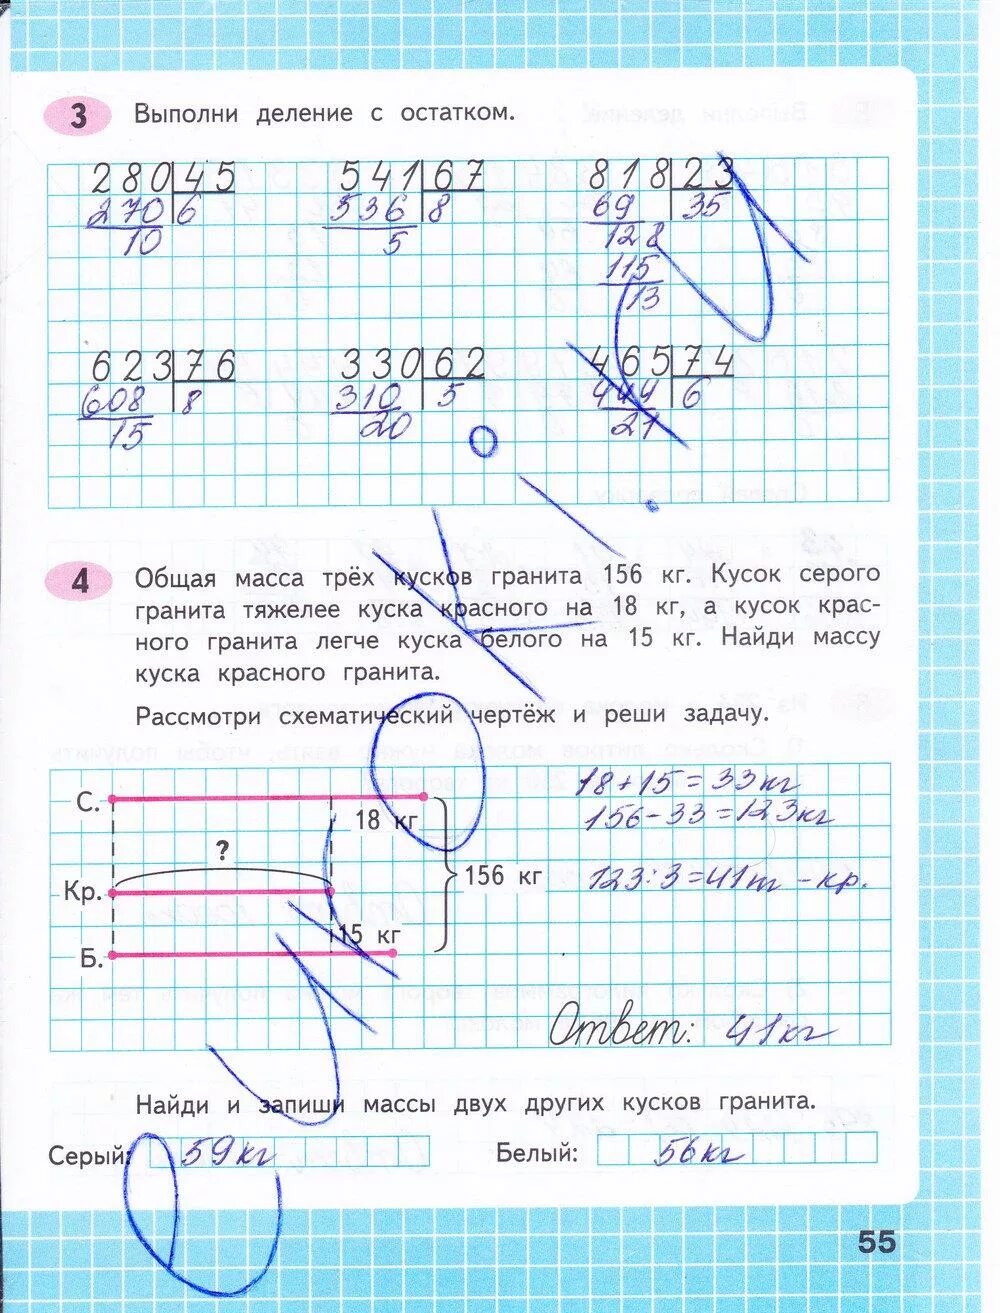 3 Выполни деление с остатком.
280 45 541 67 818 23
270 6 536 8 69 35
10 5 128
115
13
623 76 330 62 465 74
608 8 310 5 444 6
15 20 21
4 Общая масса трёх кусков гранита 156 кг. Кусок серого
гранита тяжелее куска красного на 18 кг, а кусок крас-
ного гранита легче куска белого на 15 кг. Найди массу
куска красного гранита.
Рассмотри схематический чертёж и реши задачу.
18+15=33кг
С.
156-33=123кг
18 кг
?
Кр. 156 кг 123:3=41т - кр.
15 кг
Б.
Ответ: 41кг
Найди и запиши массы двух других кусков гранита.
Серый: 59кг Белый: 56кг
55